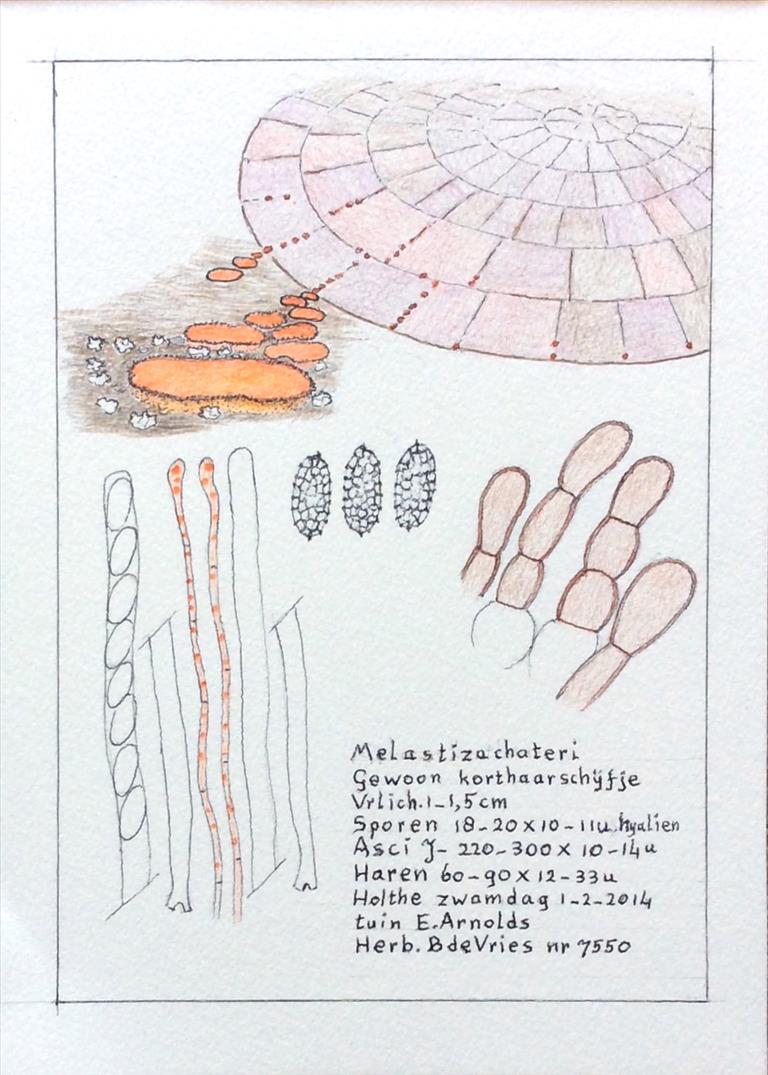 Melastiza chateri
Gewoon korthaarschijfje
Vrlich. 1-1,5 cm
Sporen 18-20 x 10-11u hyalien
Asci J- 220-300 x 10-14u
Haren 60-90 x 12-33u
Holthe zwamdag 1-2-2014
tuin E. Arnolds
Herb. B de Vries nr 7550